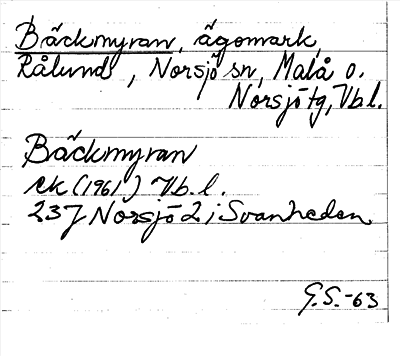 Bäckmyran, ägomark,
Rålund, Norsjö sn, Malå o.
Norsjö tg, Vb.l.
Bäckmyran
ek (1961) Vb.l.
23J Norsjö 2 i Svanheden
G.S.-63